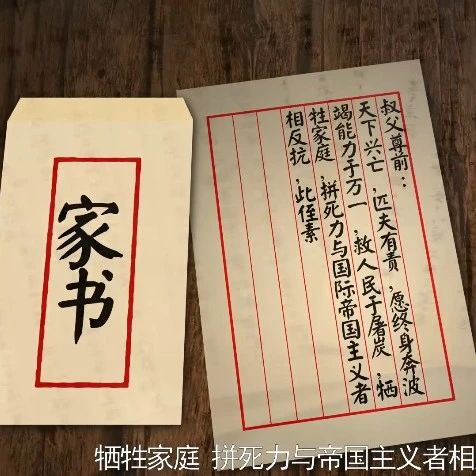 家书
叔父尊前：
天下兴亡，匹夫有责，愿终身奔波
竭能力于万一，救人民于屠炭，牺
牲家庭，拼死力与国际帝国主义者
相反抗，此侄素
牺牲家庭 拼死力与帝国主义者相